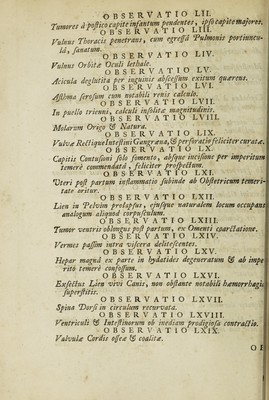 OBSERVATIO LII.
Tumores à postico capite infantum pendentes, ipso capite majores.
OBSERVATIO LIII.
Vulnus Thoracis penetrans, cum egressâ Pulmonis portiuncu-
lâ, sanatum.
OBSERVATIO LIV.
Vulnus Orbitæ Oculi lethale.
OBSERVATIO LV.
Acicula deglutita per inguinis abscessum exitum quærens.
OBSERVATIO LVI.
Asthma serosum cum notabili renis calculo.
OBSERVATIO LVII.
In puello trienni, calculi insolitæ magnitudinis.
OBSERVATIO LVIII.
Molarum Origo & Natura.
OBSERVATIO LIX.
Vulvæ Rectique Intestini Gangræna, & perforatio feliciter curatæ.
OBSERVATIO LX.
Capitis Contusioni sola fomento, absque incisione per imperitum
temerè commendatâ, feliciter prospectum.
OBSERVATIO LXI.
Uteri post partum inflammatio subinde ab Obstetricum temeri-
tate oritur.
OBSERVATIO LXII.
Lien in Pelvim prolapsus, ejusque naturalem locum occupans
analogum aliquod corpusculum.
OBSERVATIO LXIII.
Tumor ventris oblongus post partum, ex Omenti coarctatione.
OBSERVATIO LXIV.
Vermes passim intra viscera delitescentes.
OBSERVATIO LXV.
Hepar magnâ ex parte in hydatides degeneratum & ab impe-
ritò temerè confossum.
OBSERVATIO LXVI.
Exsectus Lien vivi Canis, non obstante notabili hæmorrhagiâ
superstitis.
OBSERVATIO LXVII.
Spina Dorsi in circulum recurvata.
OBSERVATIO LXVIII.
Ventriculi & Intestinorum ob inediam prodigiosa contractio.
OBSERVATIO LXIX.
Valvulæ Cordis osseæ & coalitæ.